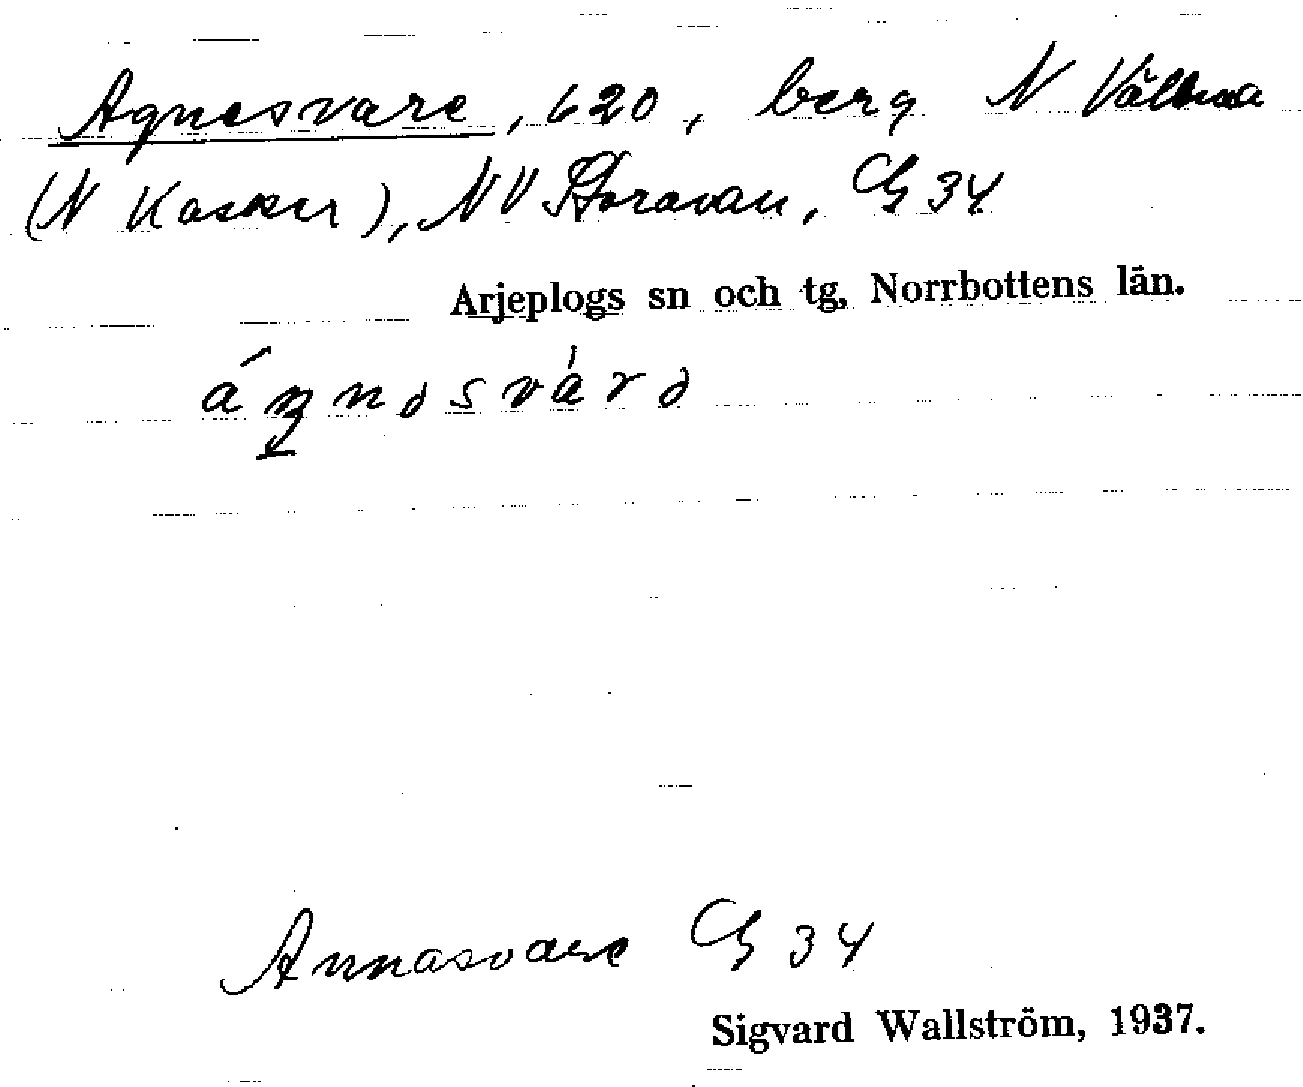 Agnesvare, 620, berg N
(N Kasker), NV Storavan, G 34
Arjeplogs sn och tg, Norrbottens län.
Annasvare G 34
Sigvard Wallström, 1937.